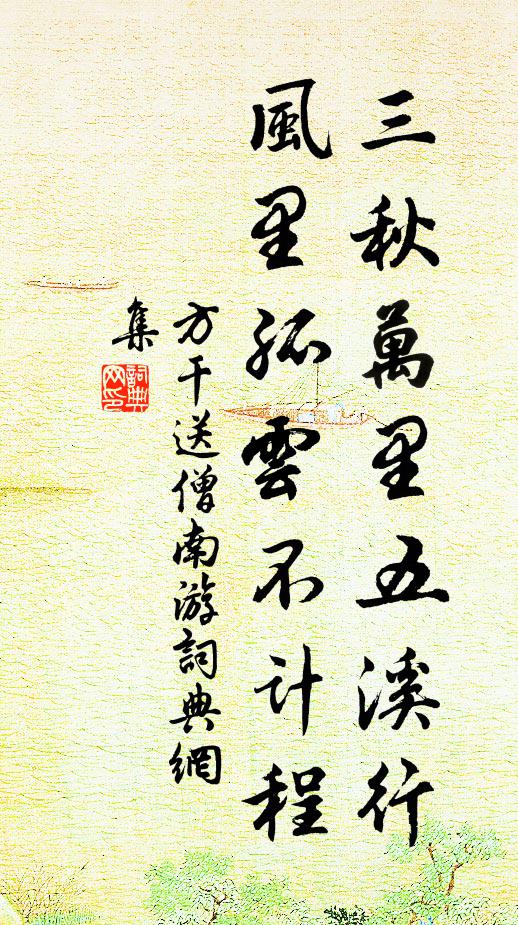 三秋萬里五溪行
風里孤雲不計程
方干送僧南游詞典網
集
詞典网印